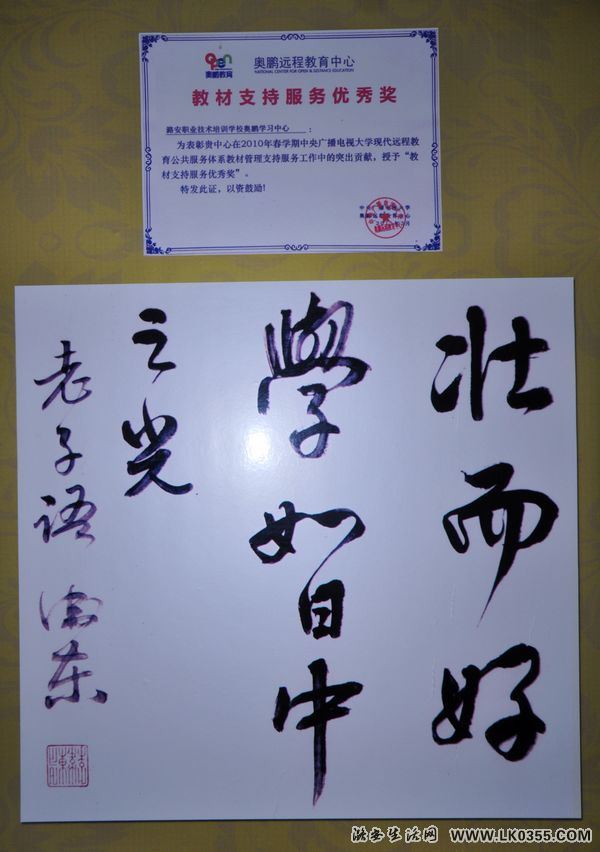 open
奥鹏教育
奥鹏远程教育中心
NATIONAL CENTER FOR OPEN & DISTANCE EDUCATION
教材支持服务优秀奖
潞安职业技术培训学校奥鹏学习中心：
为表彰贵中心在2010年春学期中央广播电视大学现代远程教
育公共服务体系教材管理支持服务工作中的突出贡献，授予“教
材支持服务优秀奖”。
特发此证，以资鼓励!
壮而好
學如日中
之光
老子语
潞安生活网 www.LK0355.com